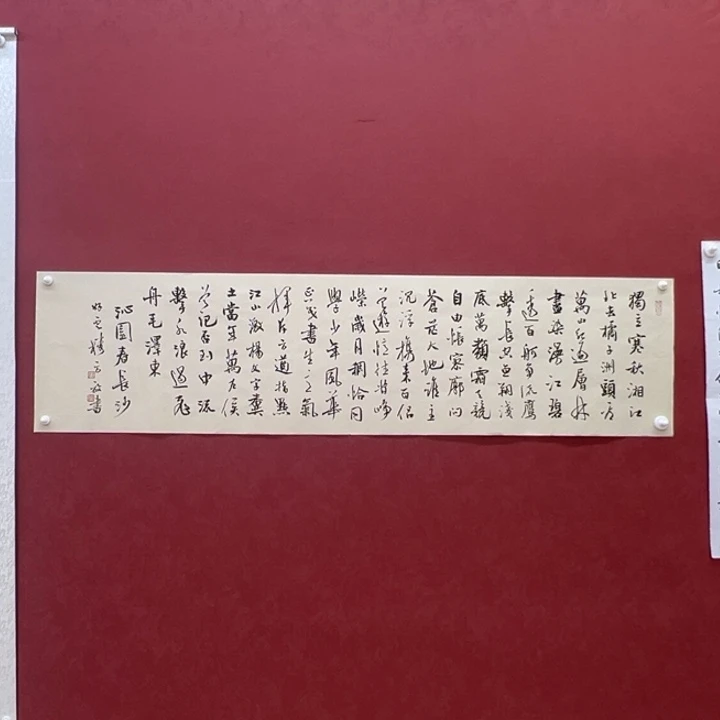 獨立寒秋湘江
北去橘子洲頭看
萬山红遍層林
盡染漫江碧
透百舸争流鹰
擊長空鱼翔淺
底萬類霜天競
自由悵寥廓问
蒼茫大地谁主
沉浮携来百侣
曾遊憶往昔峥
嵘歲月稠恰同
學少年風華
正茂書生意氣
揮斥方遒指點
江山激揚文字糞
土當年萬户侯
曾记否到中流
擊水浪遏飛
舟毛澤東
沁園春長沙
書